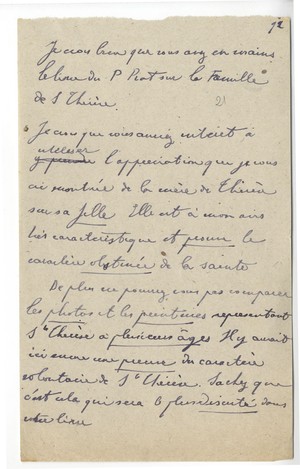 72
Je crois bien que vous avez en mains
le livre du P Piat sur la Famille
de S Thérèse.
21
Je crois que vous auriez intérêt à
utiliser l'appréciation que je vous
ai montrée de la mère de Thérèse
sur sa fille Elle est à mon avis
très caractéristique et prouve le
caractère obstinée de la sainte
De plus ne pourriez vous pas comparer
les photos et les peintures representant
Ste Thérèse à plusieurs âges Il y aurait
ici encore une preuve du caractère
volontaire de Ste Thérèse. Sachez que
c'est cela qui sera le plus discuté dans
votre livre